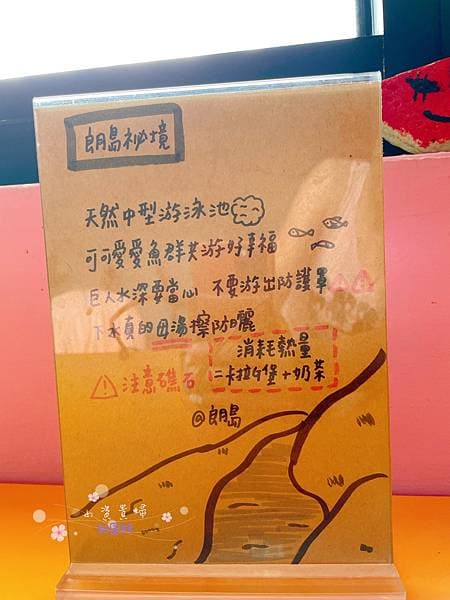 朗島祕境
天然中型游泳池
可可愛愛魚群共游好幸福
巨人水深要當心 不要游出防護罩
下水真的毋湯擦防曬
消耗熱量
=卡拉G堡+奶茶
注意礁石
@朗島
小資貴婦